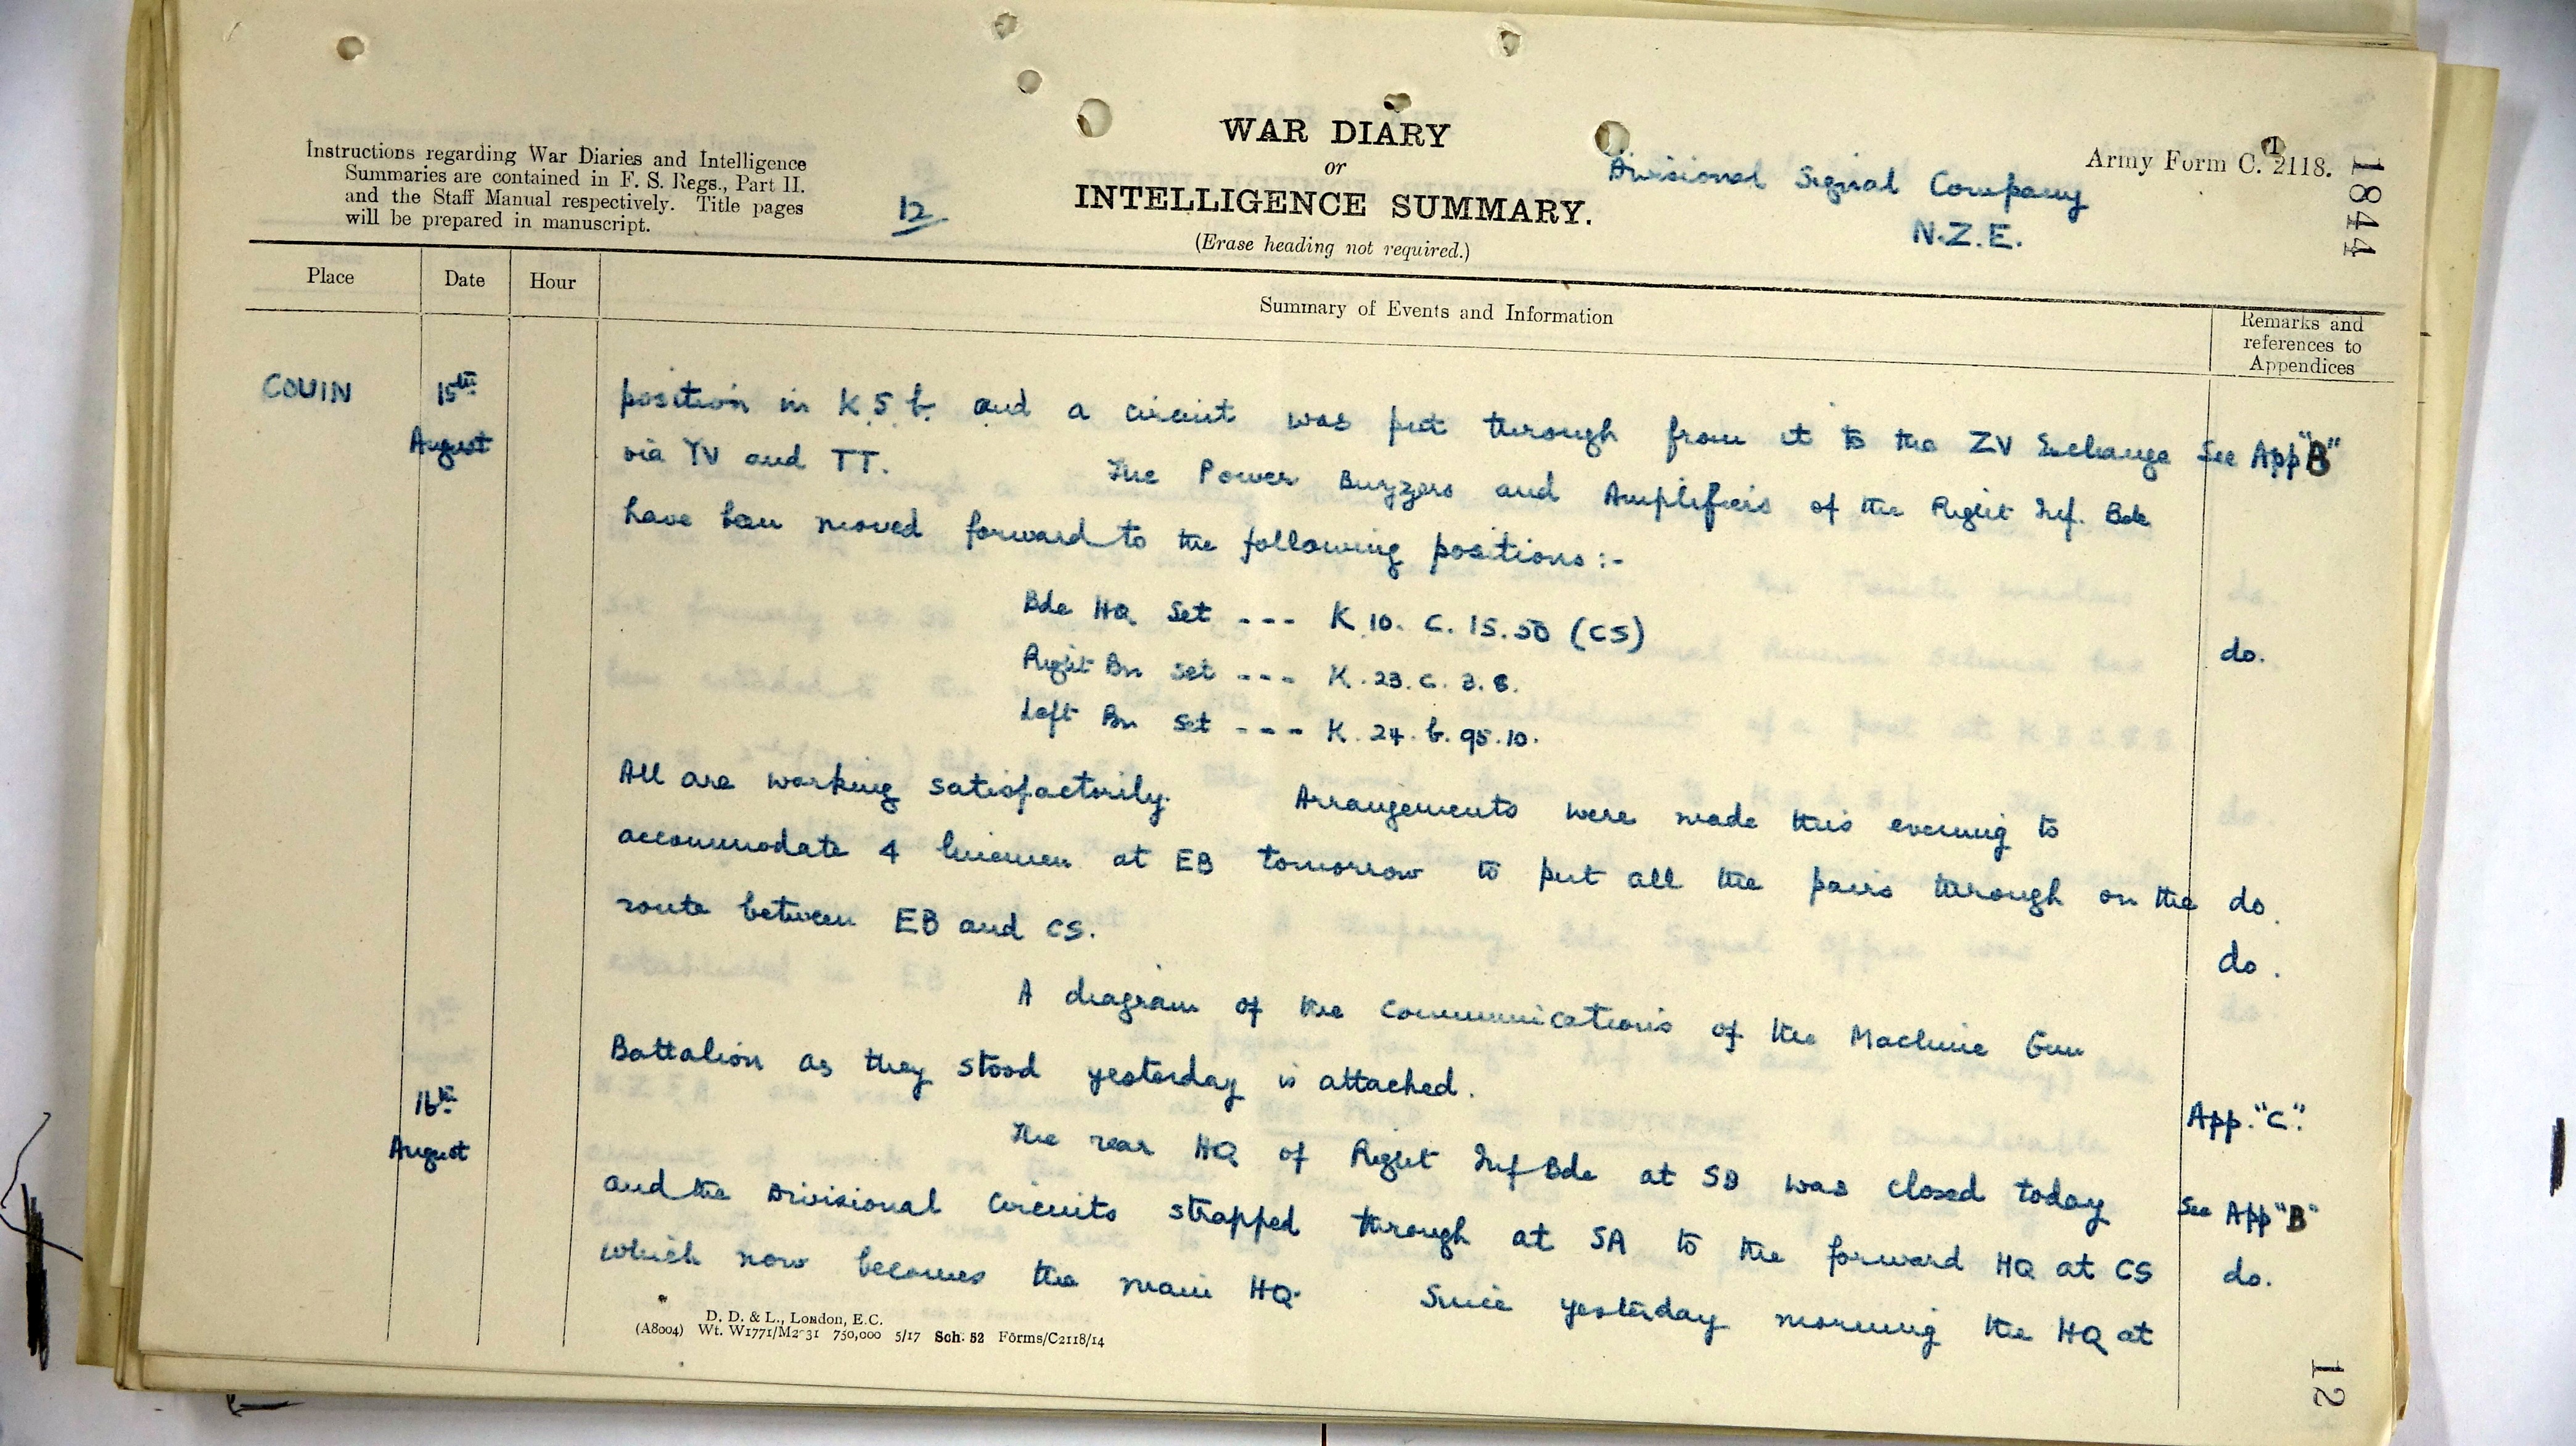 Instructions regarding War Diaries and Intelligence
Summaries are contained in F. S. Regs., Part II.
and the Staff Manual respectively. Title pages
will be prepared in manuscript.
12
WAR DIARY
or
INTELLIGENCE SUMMARY.
(Erase heading not required.)
Divisional Signal Company
N.Z.E.
Army Form C. 2118.
1844
Place
Date
Hour
Summary of Events and Information
Remarks and
references to
Appendices
COUIN 15th August
position in K.5.b. and a circuit was put through from it to the ZV Exchange See App "B"
via YV and TT. The Power Buzzers and Amplifiers of the Right Inf. Bde
have been moved forward to the following positions :-
Bde HQ Set --- K.10.c.15.50 (CS) do.
Right Bn Set --- K.23.c.3.8.
Left Bn Set --- K.24.b.95.10.
All are working satisfactorily. Arrangements were made this evening to
accommodate 4 linemen at EB tomorrow to put all the pairs through on the do.
route between EB and CS. do.
A diagram of the Communications of the Machine Gun
Battalion as they stood yesterday is attached. App. "C".
16th August
The rear HQ of Right Inf Bde at SB was closed today See App "B"
and the Divisional Circuits strapped through at SA to the forward HQ at CS do.
which now becomes the main HQ. Since yesterday morning the HQ at
D. D. & L., London, E.C.
(A8004) Wt. W1771/M2031 750,000 5/17 Sch. 52 Forms/C2118/14
12